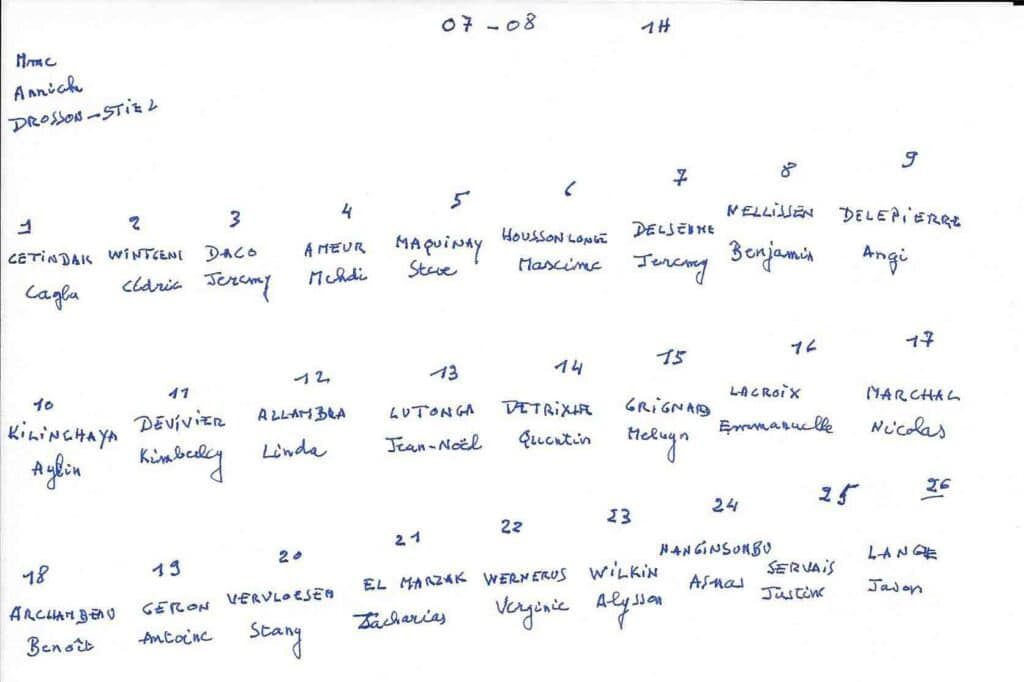 07-08 1H
Mme
Annick
DROSSON-STIEL
1 2 3 4 5 6 7 8 9
CETINDAK WINTGENS DACO AMEUR MAQUINAY HOUSSONLONGE DELSEMME NELLISSEN DELEPIERRE
Cagla Cédric Jeremy Mehdi Steve Maxime Jeremy Benjamin Angi
10 11 12 13 14 15 16 17
KILINCHAYA DEVIVIER ALLAMBRA LUTONGA DETRIXHE GRIGNARD LACROIX MARCHAL
Aylin Kimberley Linda Jean-Noël Quentin Melwyn Emmanuelle Nicolas
18 19 20 21 22 23 24 25 26
ARCHAMBEAU GERON VERVLOESEM EL MARZAK WERNERUS WILKIN SERVAIS LANGE
Benoît Antoine Stany Zacharias Verginie Alysson Justine Jason